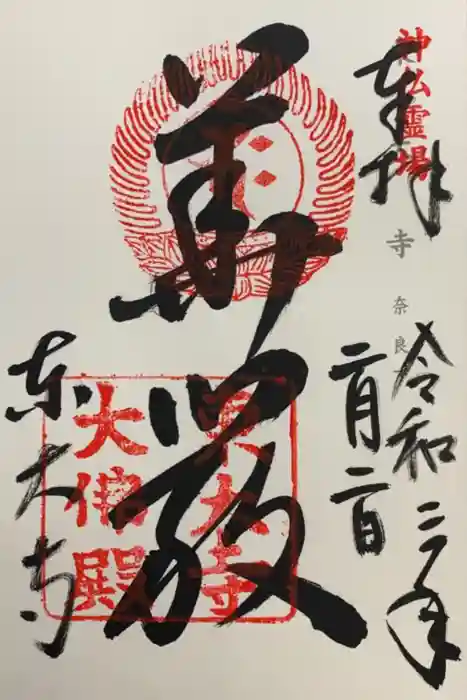 奉拝
神仏霊場
寺
奈良
令和三年
二月二日
華厳
東大寺
大佛殿
東大寺